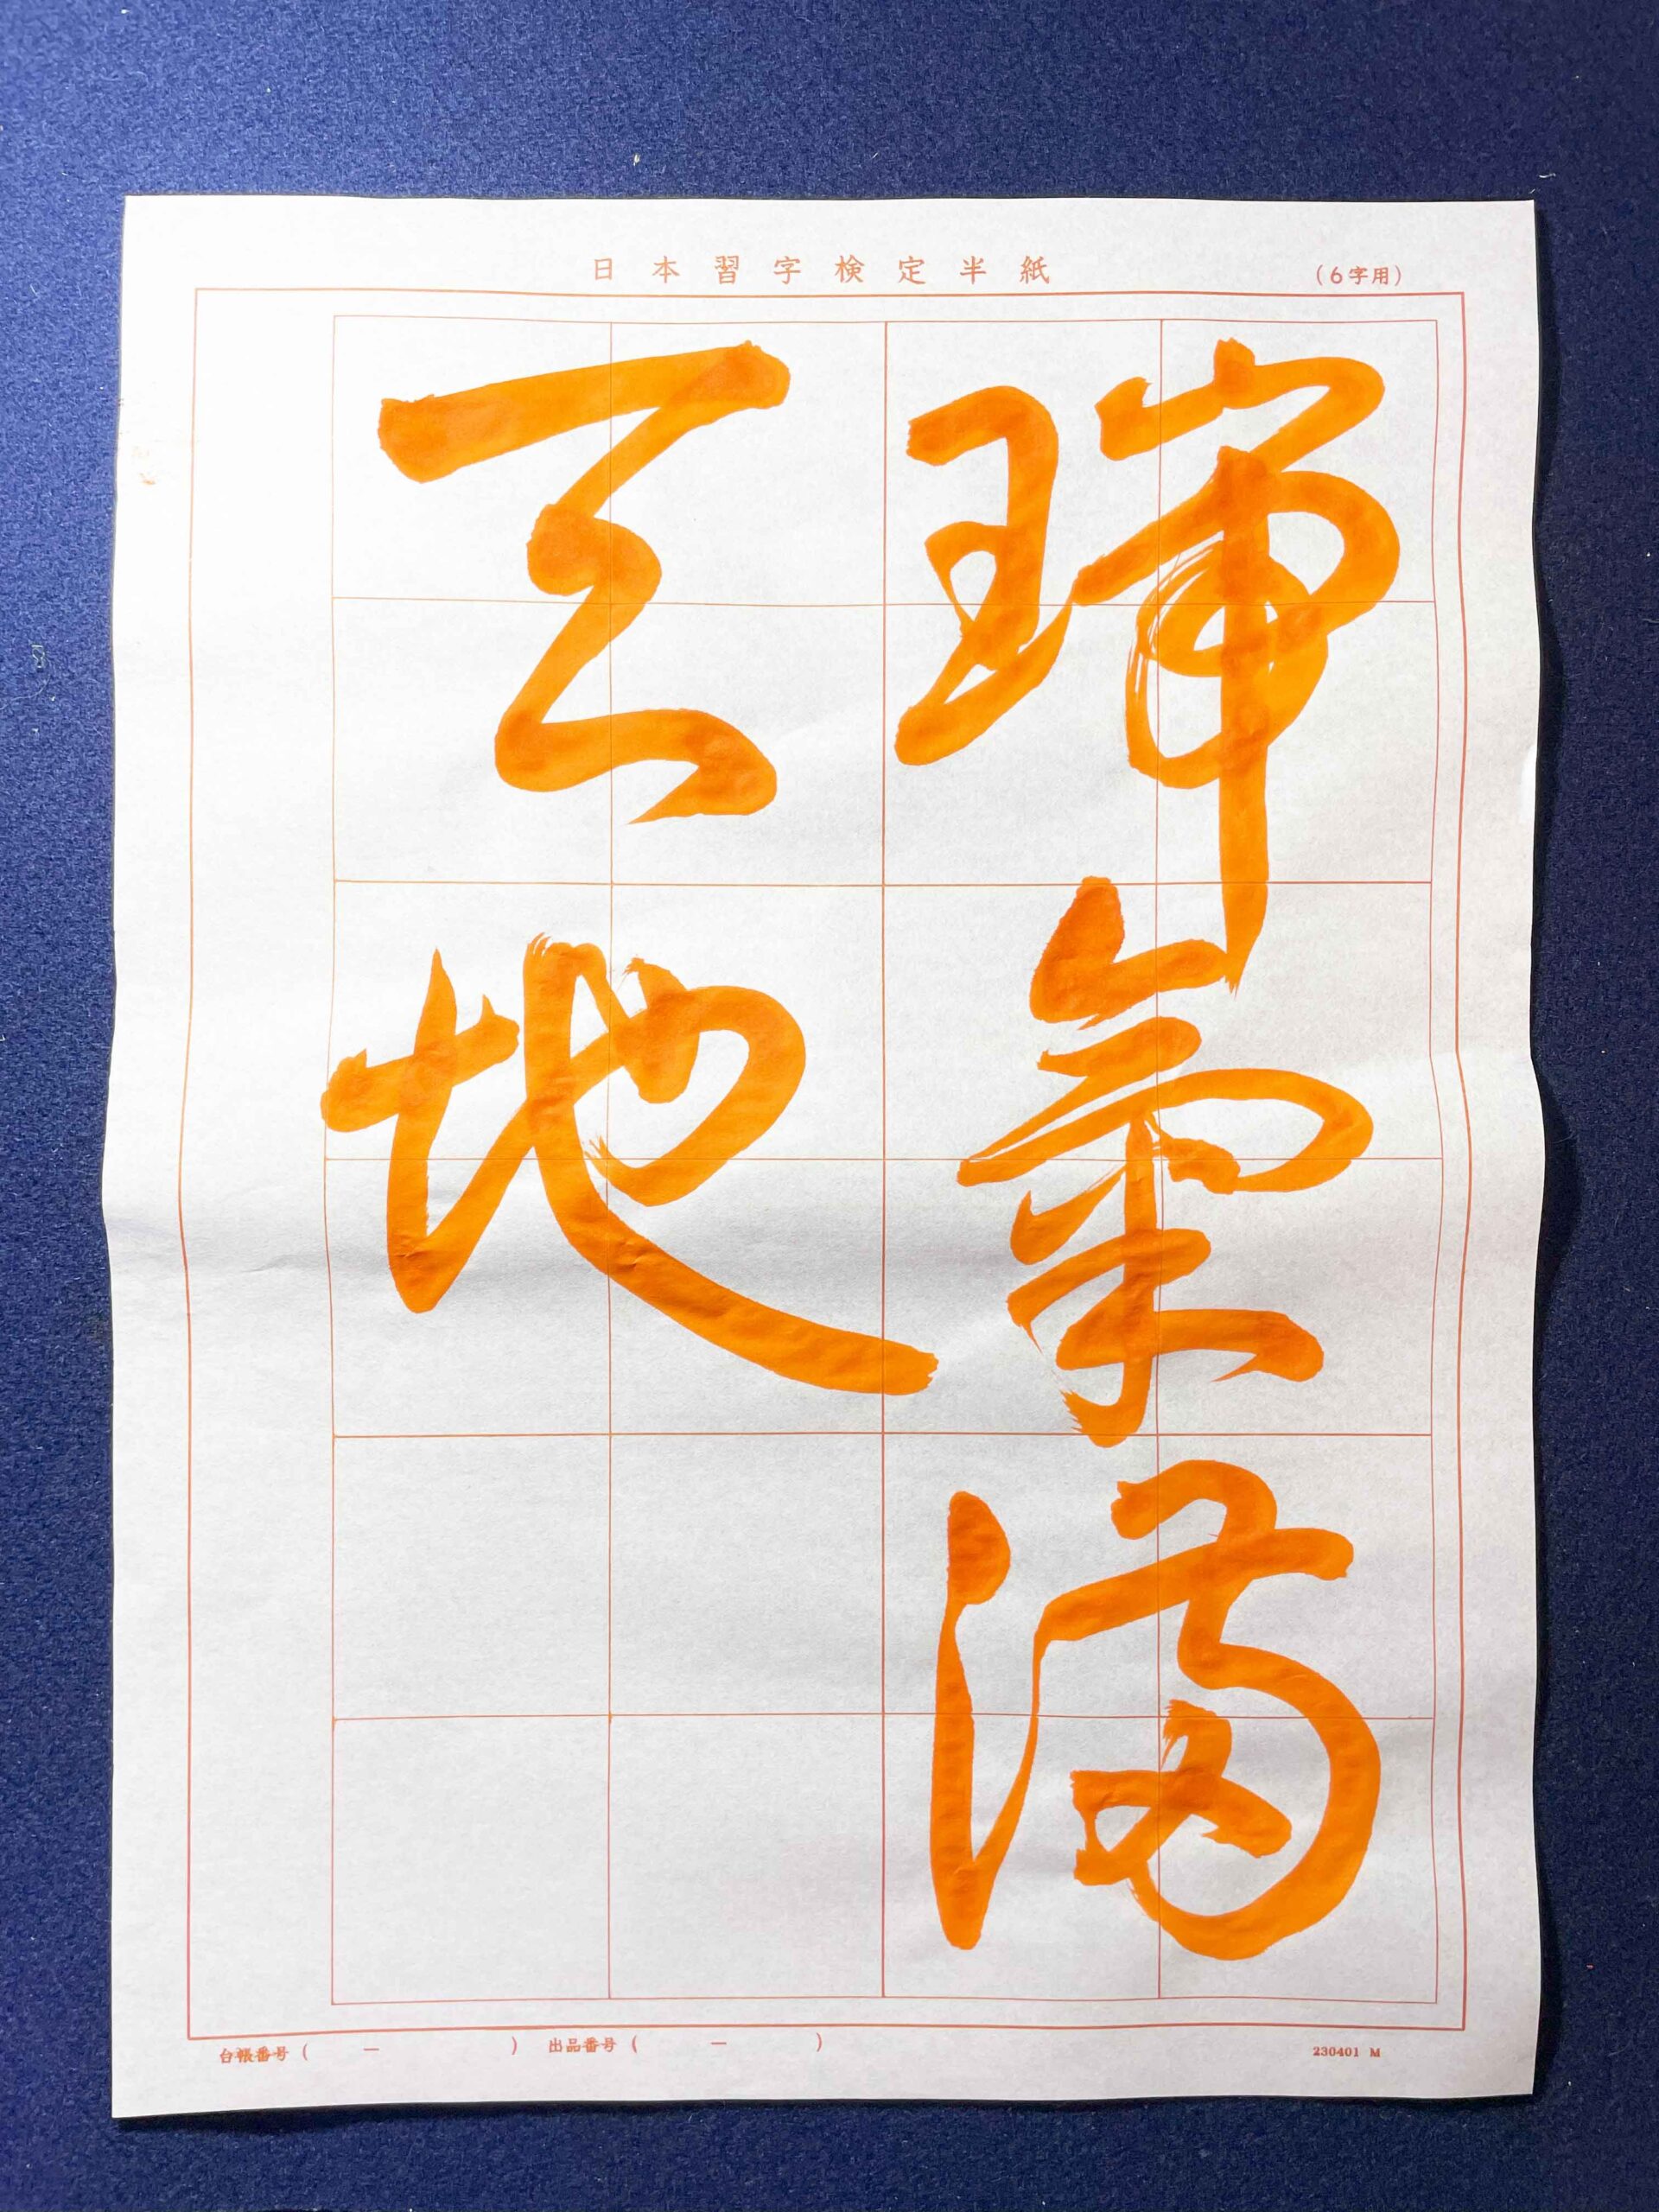 日本習字検定半紙
(6字用)
瑞氣満
天地
台帳番号( － ) 出品番号( － )
230401 M